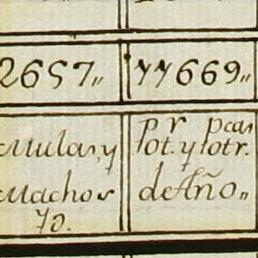 2657,,
77669,,
Mulas, y
Machos
Yd.
pr pcas
tot. y totr.
de Año,,